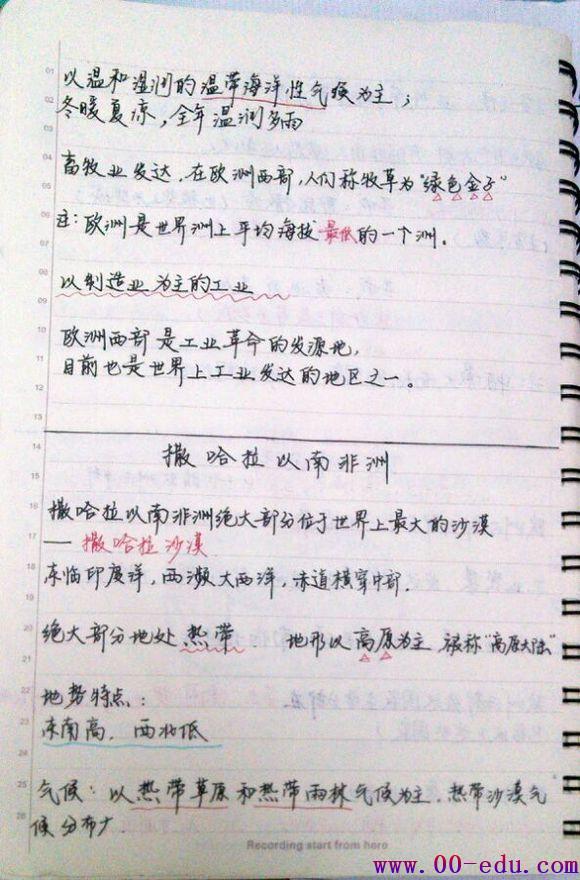 以温和湿润的温带海洋性气候为主,
冬暖夏凉,全年温润多雨
畜牧业发达,在欧洲西部,人们称牧草为"绿色金子"
注:欧洲是世界洲上平均海拔最低的一个洲.
以制造业为主的工业
欧洲西部是工业革命的发源地,
目前也是世界上工业发达的地区之一.
撒哈拉以南非洲
撒哈拉以南非洲绝大部分位于世界上最大的沙漠
—撒哈拉沙漠
东临印度洋 西濒大西洋,赤道横穿中部.
绝大部分地处热带 地形以高原为主 被称"高原大陆"
地势特点:
东南高,西北低
气候:以热带草原和热带雨林气候为主,热带沙漠气
候分布广
Recording start from here
www.00-edu.com